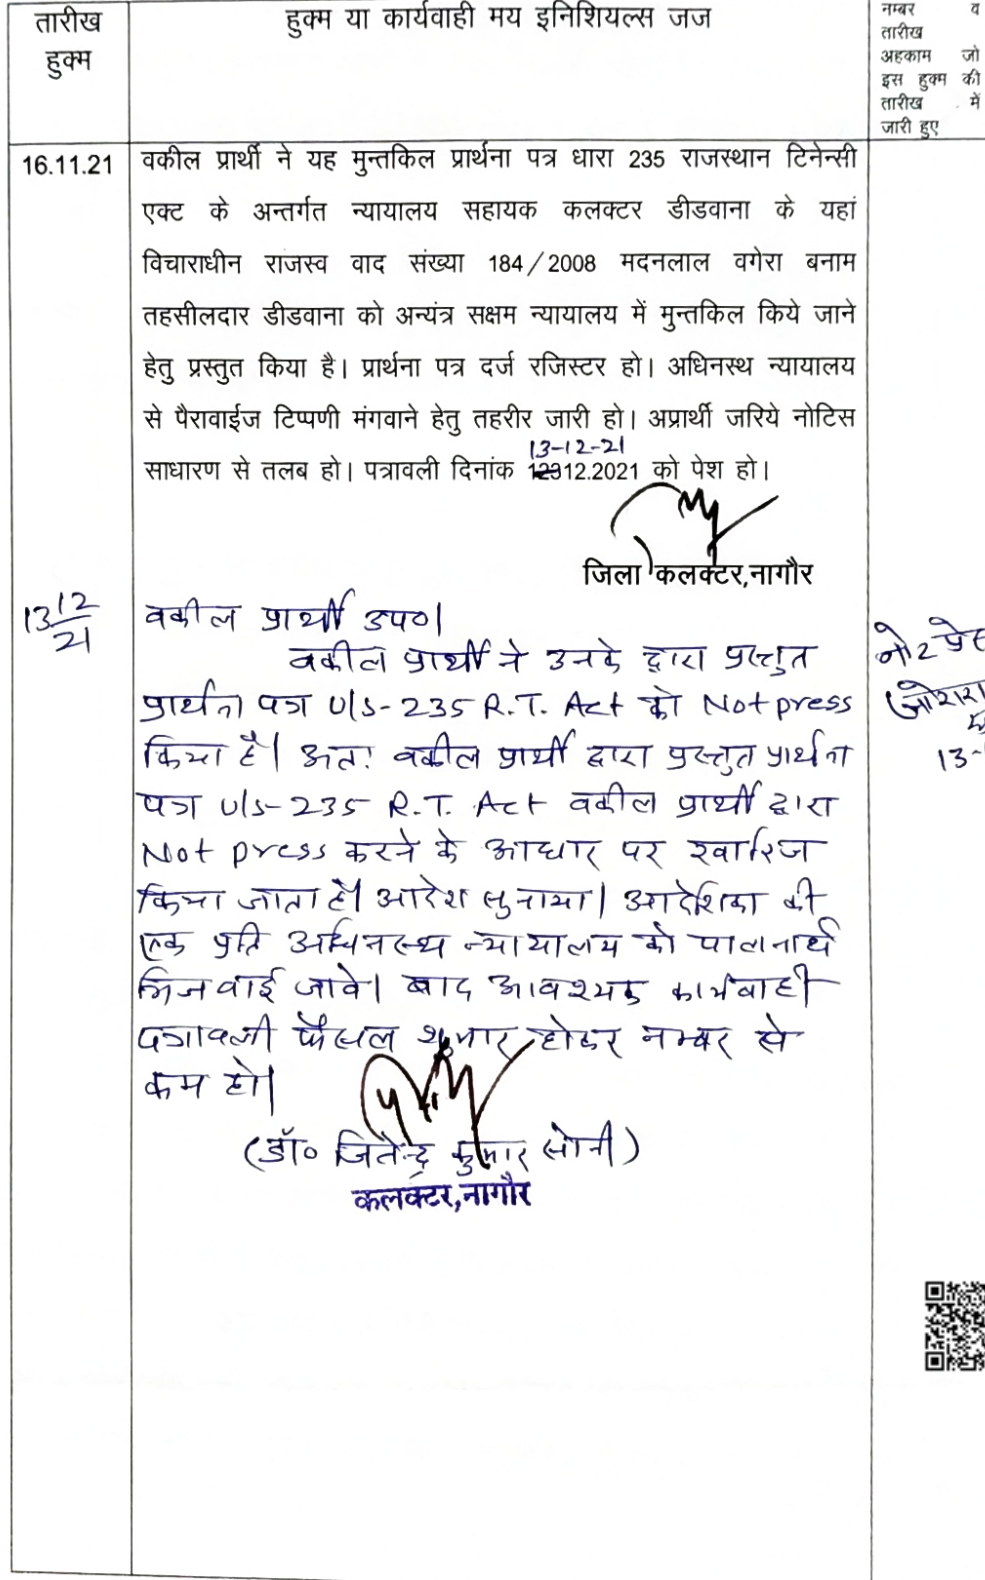 तारीख
हुक्म
हुक्म या कार्यवाही मय इनिशियल्स जज
नम्बर व
तारीख
अहकाम जो
इस हुक्म की
तारीख में
जारी हुए
16.11.21
वकील प्रार्थी ने यह मुन्तकिल प्रार्थना पत्र धारा 235 राजस्थान टिनेन्सी
एक्ट के अन्तर्गत न्यायालय सहायक कलक्टर डीडवाना के यहां
विचाराधीन राजस्व वाद संख्या 184/2008 मदनलाल वगेरा बनाम
तहसीलदार डीडवाना को अन्यंत्र सक्षम न्यायालय में मुन्तकिल किये जाने
हेतु प्रस्तुत किया है। प्रार्थना पत्र दर्ज रजिस्टर हो। अधिनस्थ न्यायालय
से पैरावाईज टिप्पणी मंगवाने हेतु तहरीर जारी हो। अप्रार्थी जरिये नोटिस
13-12-21
साधारण से तलब हो। पत्रावली दिनांक 12.2021 को पेश हो।
जिला कलक्टर,नागौर
13 12/21
वकील प्रार्थी उप०।
वकील प्रार्थी ने उनके द्वारा प्रस्तुत
प्रार्थना पत्र U/S-235 R.T. Act को Not press
किया है। अतः वकील प्रार्थी द्वारा प्रस्तुत प्रार्थना
पत्र U/S-235 R.T. Act वकील प्रार्थी द्वारा
Not press करने के आधार पर खारिज
किया जाता है। आदेश सुनाया। आदेशिका की
एक प्रति अधिनस्थ न्यायालय को पालनार्थ
भिजवाई जावे। बाद आवश्यक कार्यवाही
पत्रावली फैसल शुमार होकर नम्बर से
कम हो।
(डॉ० जितेन्द्र कुमार सोनी)
कलक्टर,नागौर
नोट प्रेस
13-